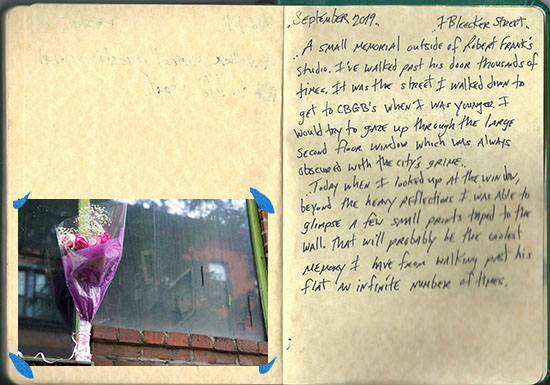 September 2019. 7 Bleecker Street.
A small memorial outside of Robert Frank's
studio. I've walked past his door thousands of
times. It was the street I walked down to
get to CBGB's when I was younger. I
would try to gaze up through the large
second floor window which was always
obscured with the city's grime.
Today when I looked up at the window,
beyond the heavy reflections I was able to
glimpse a few small prints taped to the
wall. That will probably be the coolest
memory I have from walking past his
flat an infinite number of times.